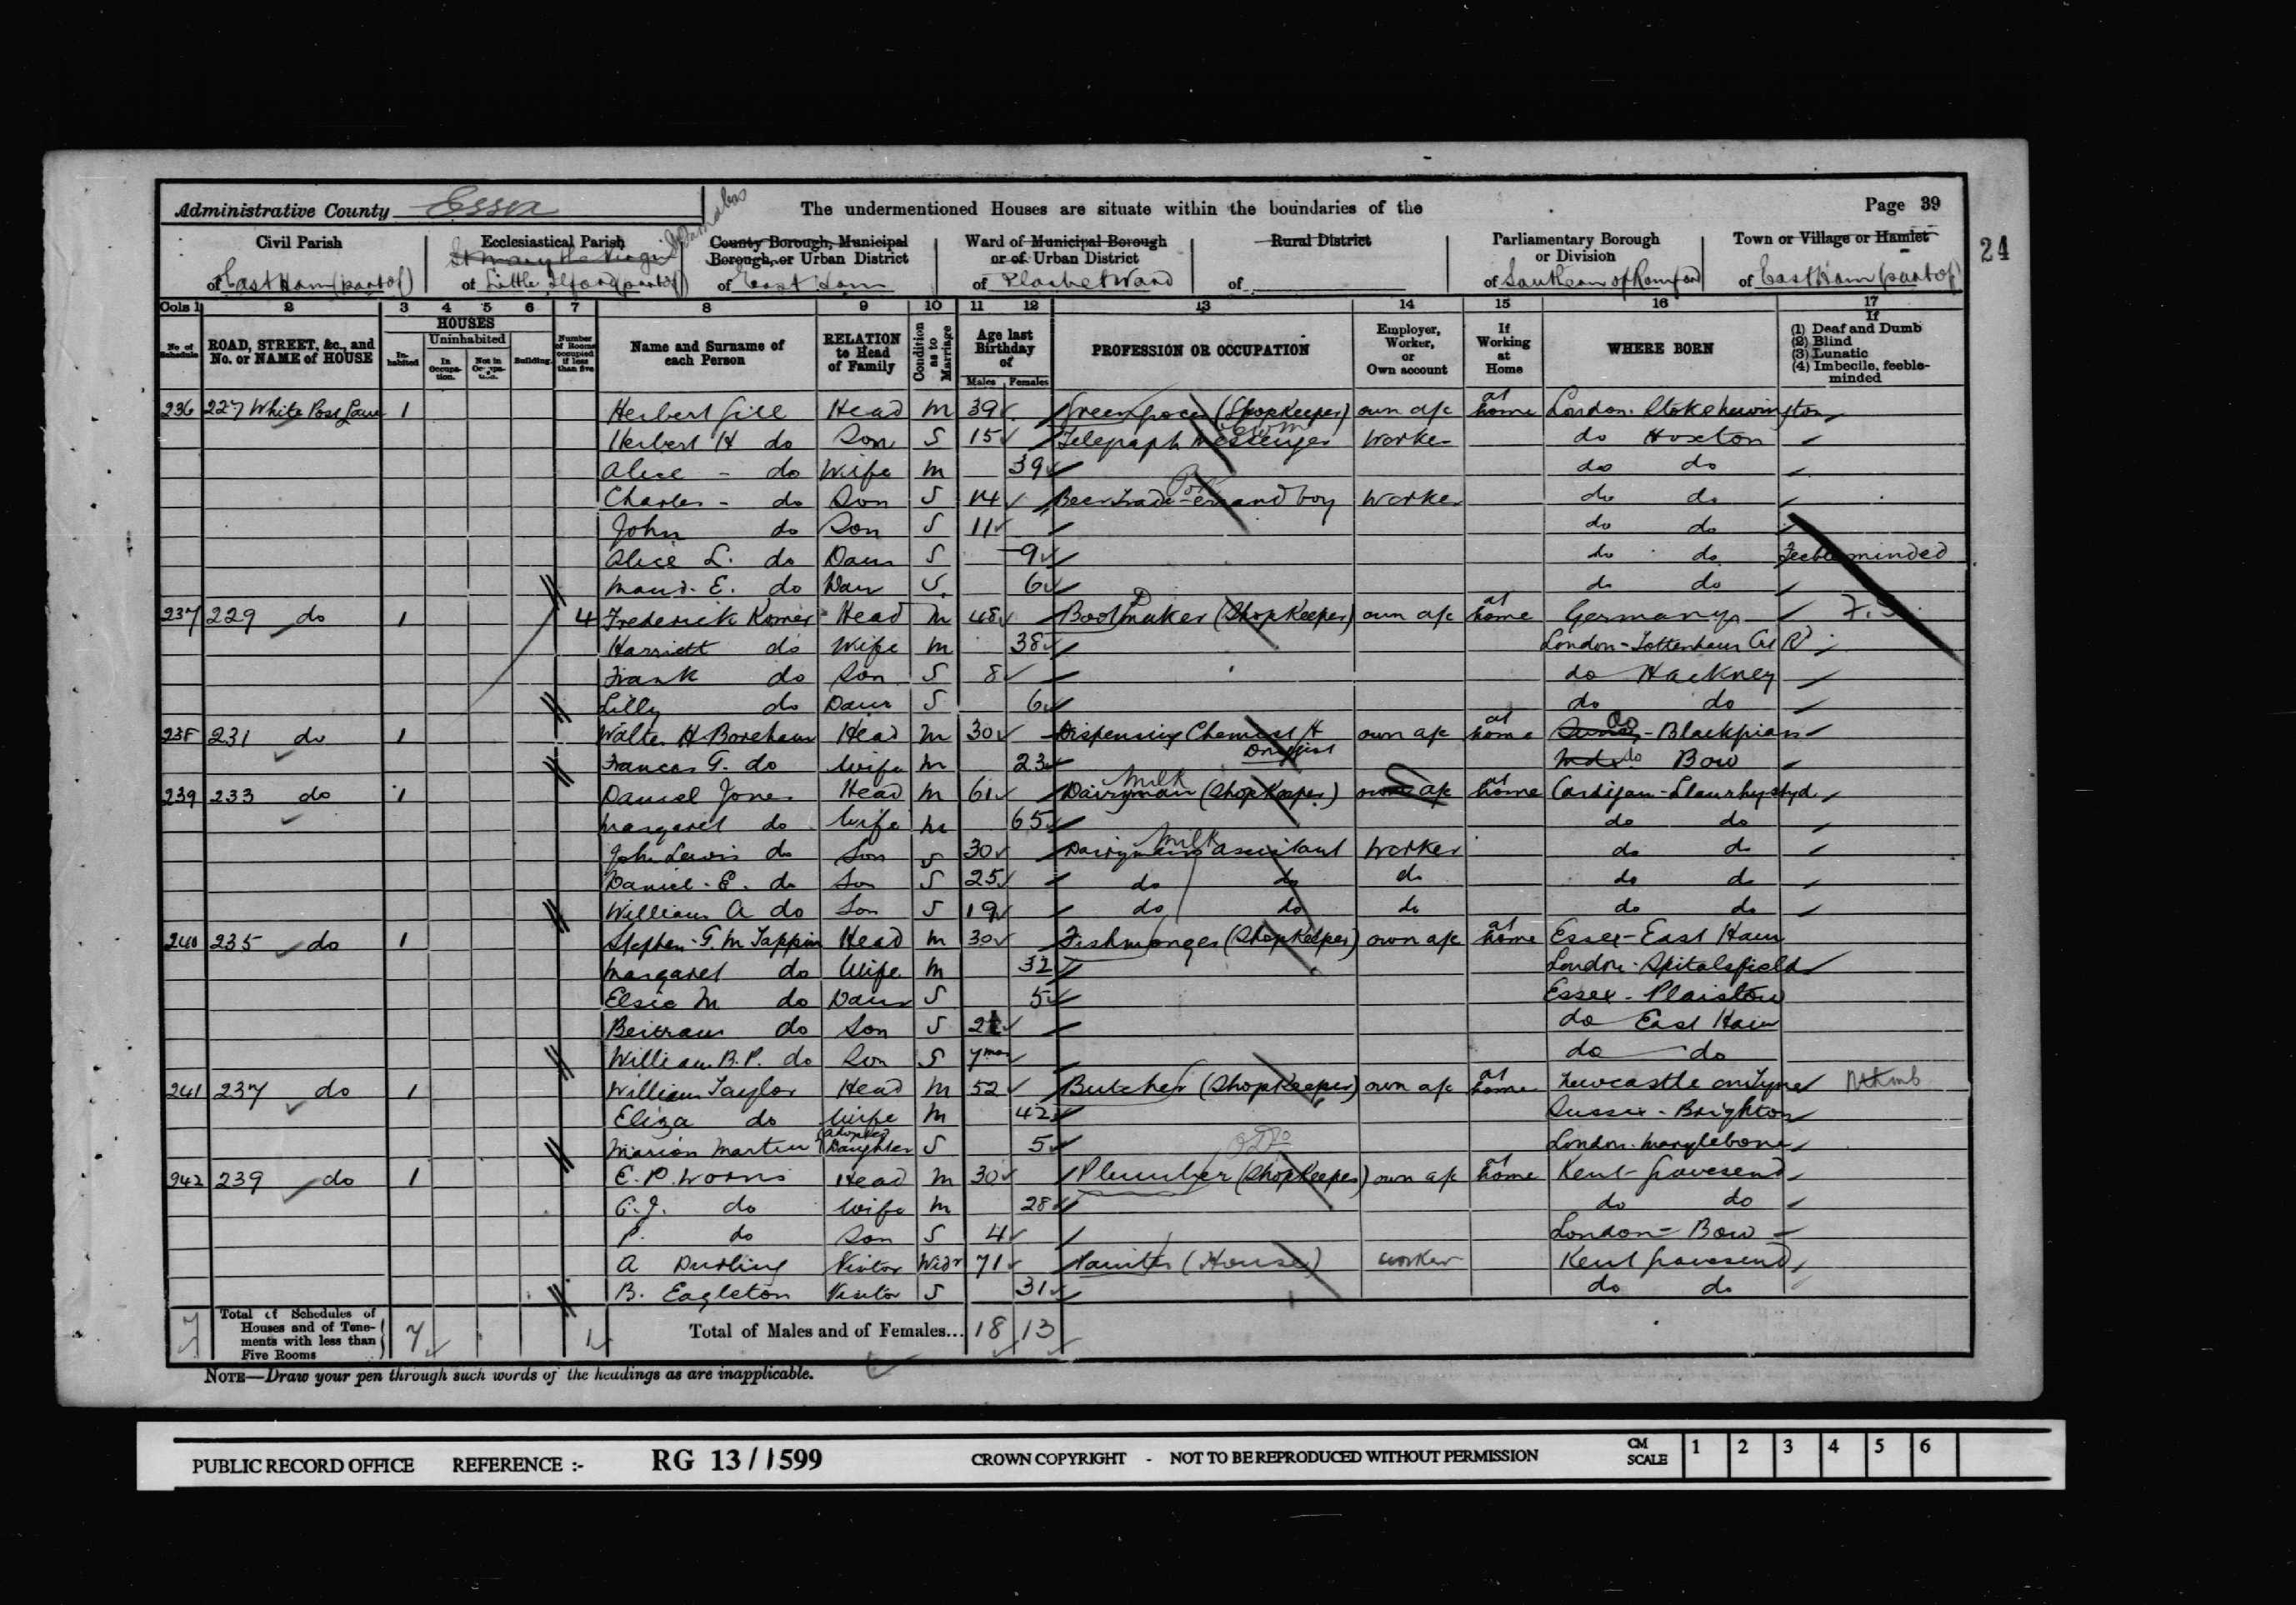 Administrative County Essex
The undermentioned Houses are situate within the boundaries of the
Page 39
24
Civil Parish
of East Ham (part of)
Ecclesiastical Parish
St Mary the Virgin
of Little Ilford (part of)
County Borough, Municipal
Borough, or Urban District
of East Ham
Ward of Municipal Borough
or of Urban District
of Plashet Ward
Rural District
of
Parliamentary Borough
or Division
of Southern of Romford
Town or Village or Hamlet
of East Ham (part of)
Cols 1 2 3 4 5 6 7 8 9 10 11 12 13 14 15 16 17
No of Schedule
ROAD, STREET, &c., and No. or NAME of HOUSE
HOUSES
Inhabited
Uninhabited
In Occupation.
Not in Occupation.
Building.
Number of Rooms occupied if less than five
Name and Surname of each Person
RELATION to Head of Family
Condition as to Marriage
Age last Birthday of
Males Females
PROFESSION OR OCCUPATION
Employer, Worker, or Own account
If Working at Home
WHERE BORN
If
(1) Deaf and Dumb
(2) Blind
(3) Lunatic
(4) Imbecile, feeble-minded
236 227 White Post Lane 1 Herbert Gill Head M 39 Greengrocer (Shopkeeper) own a/c at home London Stoke Newington
Herbert H do Son S 15 Telegraph Messenger Worker do Hoxton
Alice - do Wife M 39 do do
Charles - do Son S 14 Beer Trade errand boy Worker do do
John do Son S 11 do do
Alice L. do Daur S 9 do do Feeble minded
Maud. E. do Daur S 6 do do
237 229 do 1 4 Frederick Komer Head M 48 Bootmaker (Shopkeeper) own a/c at home Germany F.S.
Harriett do Wife M 38 London - Tottenham Ct Rd
Frank do Son S 8 do Hackney
Lilly do Daur S 6 do do
238 231 do 1 Walter H Boreham Head M 30 Dispensing Chemist & Druggist own a/c at home do - Blackfriars
Frances G. do Wife M 23 do Bow
239 233 do 1 Daniel Jones Head M 61 Milk Dairyman (Shopkeeper) own a/c at home Cardigan - Llanrhystyd
Margaret do Wife M 65 do do
John Lewis do Son S 30 Milk Dairymans assistant Worker do do
Daniel. E. do Son S 25 do do do do do
William A do Son S 19 do do do do do
240 235 do 1 Stephen G. M Tappin Head M 30 Fishmonger (Shopkeeper) own a/c at home Essex - East Ham
Margaret do Wife M 32 London - Spitalsfield
Elsie M do Daur S 5 Essex - Plaistow
Bertram do Son S 2 do East Ham
William B. P. do Son S 7 mos do do
241 237 do 1 William Taylor Head M 52 Butcher (Shopkeeper) own a/c at home Newcastle on Tyne Nthmb
Eliza do Wife M 42 Sussex - Brighton
Marion Martin (adopted) Daughter S 5 London. Marylebone
242 239 do 1 E. P. Worns Head M 30 Plumber (Shopkeeper) own a/c at home Kent - Gravesend
E. J. do Wife M 28 do do
P. do Son S 4 London - Bow
A Durling Visitor Widr 71 Painter (House) worker Kent Gravesend
B. Eagleton Visitor S 31 do do
7 Total of Schedules of Houses and of Tenements with less than Five Rooms 7 1 Total of Males and of Females... 18 13
NOTE—Draw your pen through such words of the headings as are inapplicable.
PUBLIC RECORD OFFICE REFERENCE :- RG 13/1599 CROWN COPYRIGHT - NOT TO BE REPRODUCED WITHOUT PERMISSION CM SCALE 1 2 3 4 5 6